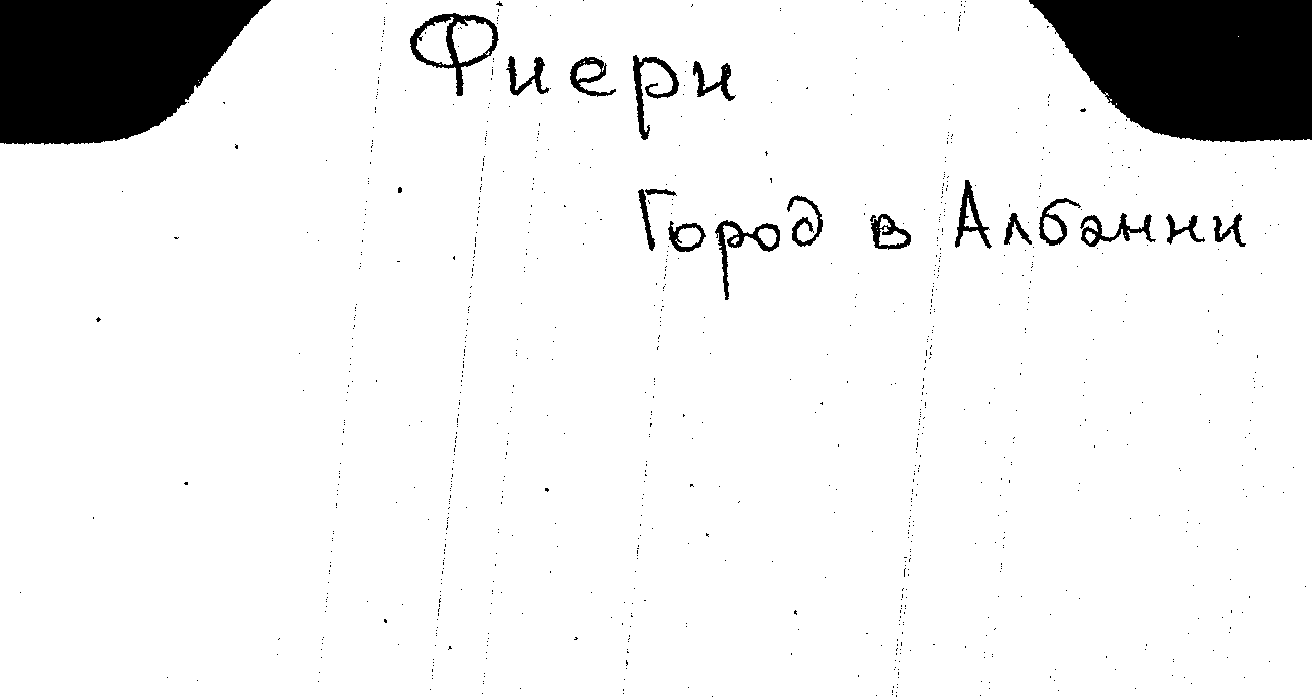 Фиери
Город в Албании